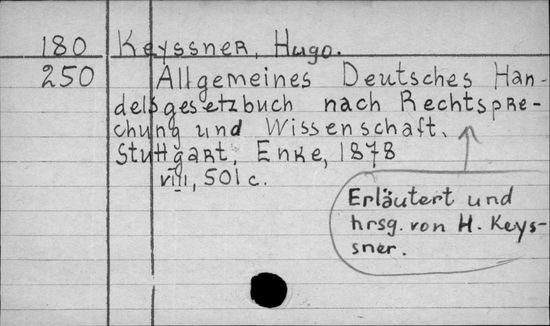 180 Keyssner, Hugo.
250 Allgemeines Deutsches Han-
delsgesetzbuch nach Rechtspre-
chung und Wissenschaft.
Stuttgart, Enke, 1878
VIII, 501 c.
Erläutert und
hrsg. von H. Keys-
sner.